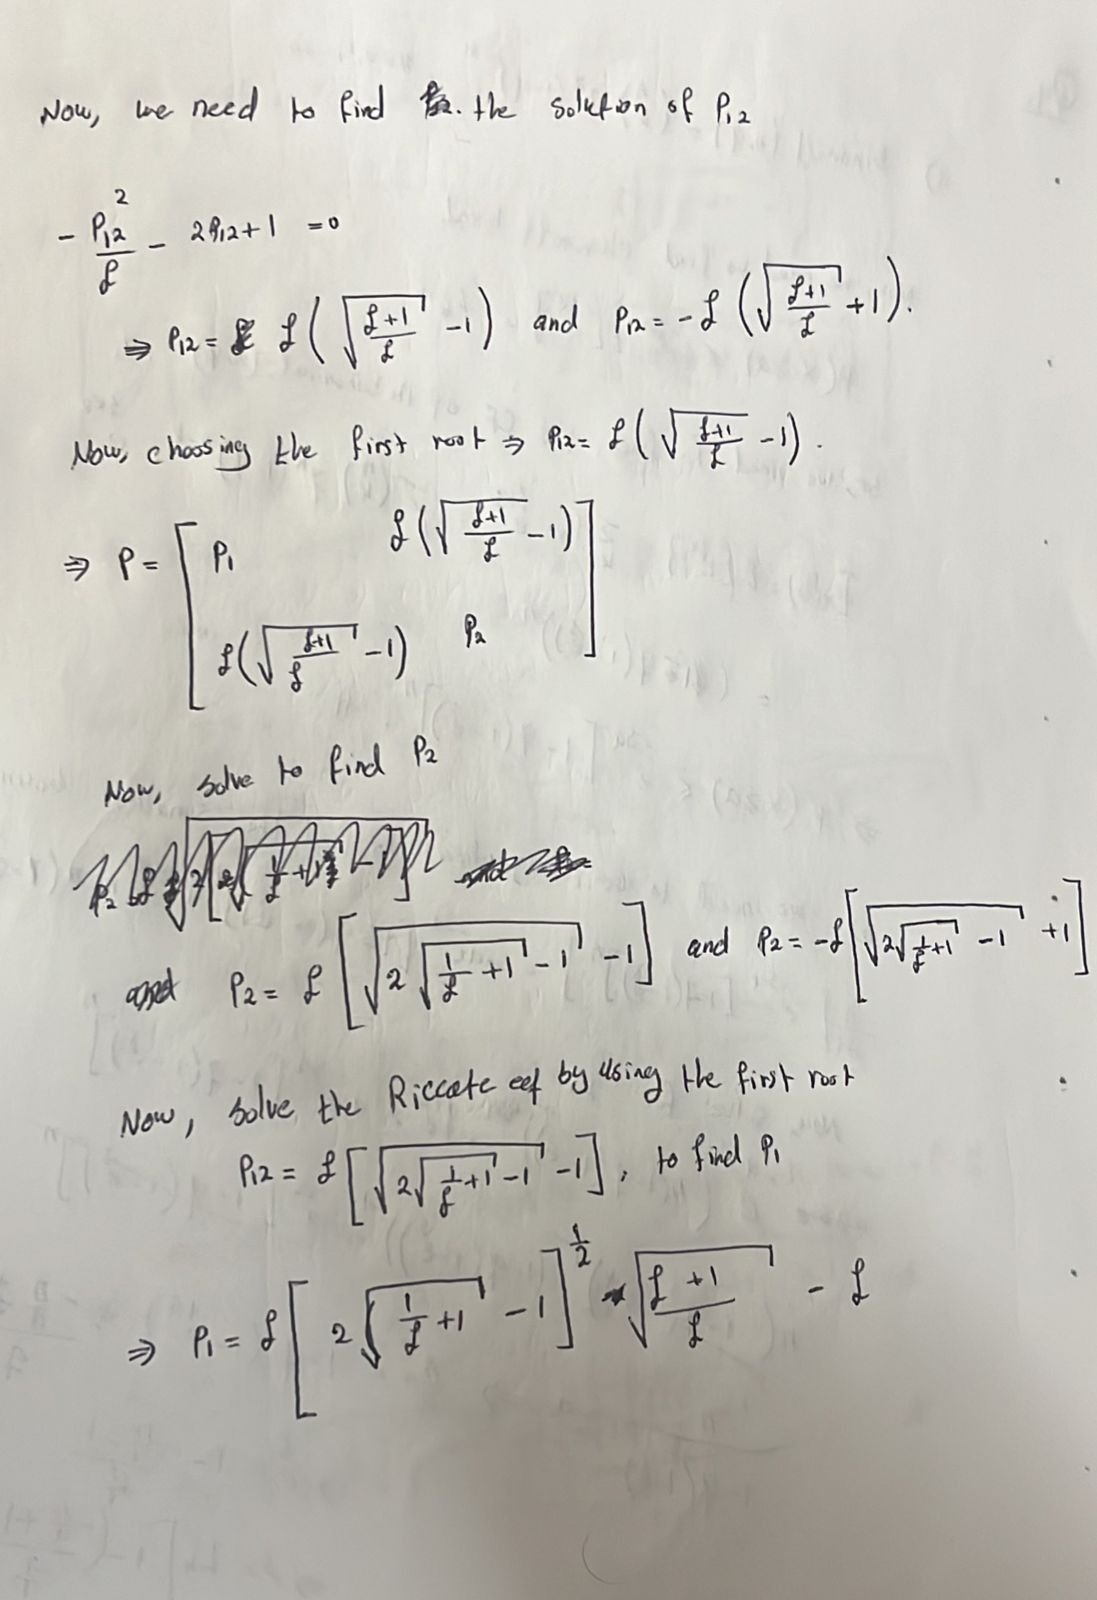 Now, we need to find the solution of P₁₂
- P₁₂²/ℒ - 2P₁₂ + 1 = 0
⇒ P₁₂ = ℒ ( √((ℒ+1)/ℒ) - 1 ) and P₁₂ = - ℒ ( √((ℒ+1)/ℒ) + 1 ).
Now, choosing the first root ⇒ P₁₂ = ℒ ( √((ℒ+1)/ℒ) - 1 ).
⇒ P = [ P₁ ℒ ( √((ℒ+1)/ℒ) - 1 )
ℒ ( √((ℒ+1)/ℒ) - 1 ) P₂ ]
Now, solve to find P₂
P₂ = ℒ [ √( 2 √(1/ℒ + 1) - 1 ) - 1 ] and P₂ = -ℒ [ √( 2 √(1/ℒ + 1) - 1 ) + 1 ]
Now, solve the Riccate by using the first root
P₁₂ = ℒ [ √( 2 √(1/ℒ + 1) - 1 ) - 1 ], to find P₁
⇒ P₁ = ℒ [ 2 √(1/ℒ + 1) - 1 ]^(1/2) √((ℒ+1)/ℒ) - ℒ